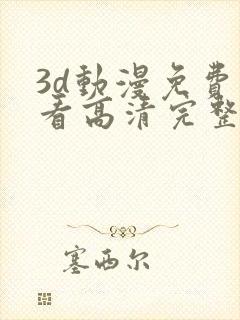 3d動漫免費
看高清完整
塞西尔